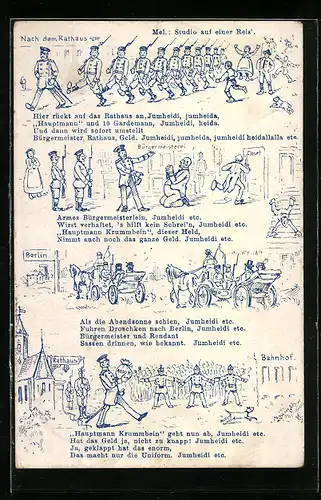 Mel.: Studio auf einer Reis'.
Nach dem Rathaus
Hier rückt auf das Rathaus an, Jumheidi, jumheida,
„Hauptmann" und 10 Gardemann, Jumheidi, heida.
Und dann wird sofort umstellt
Bürgermeister, Rathaus, Geld. Jumheidi, jumheida, jumheidi heidallala etc.
Bürgermeisterei
Armes Bürgermeisterlein, Jumheidi etc.
Wirst verhaftet, 's hilft kein Schrei'n, Jumheidi etc.
„Hauptmann Krummbein", dieser Held,
Nimmt auch noch das ganze Geld. Jumheidi etc.
Berlin
Als die Abendsonne schien, Jumheidi etc.
Fuhren Droschken nach Berlin, Jumheidi etc.
Bürgermeister und Rendant
Sassen drinnen, wie bekannt. Jumheidi etc.
Rathaus
Bahnhof.
„Hauptmann Krummbein" geht nun ab, Jumheidi etc.
Hat das Geld ja, nicht zu knapp! Jumheidi etc.
Ja, geklappt hat das enorm,
Das macht nur die Uniform. Jumheidi etc.